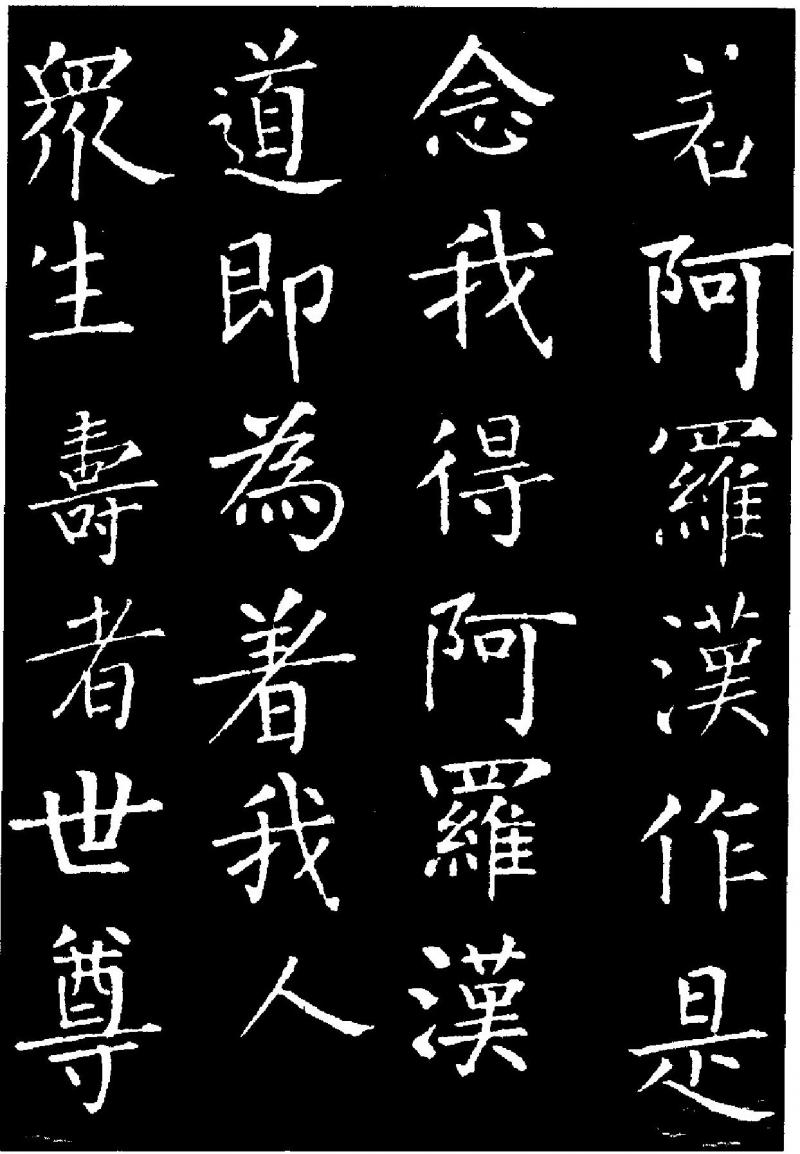 若阿羅漢作是
念我得阿羅漢
道即為着我人
衆生壽者世尊